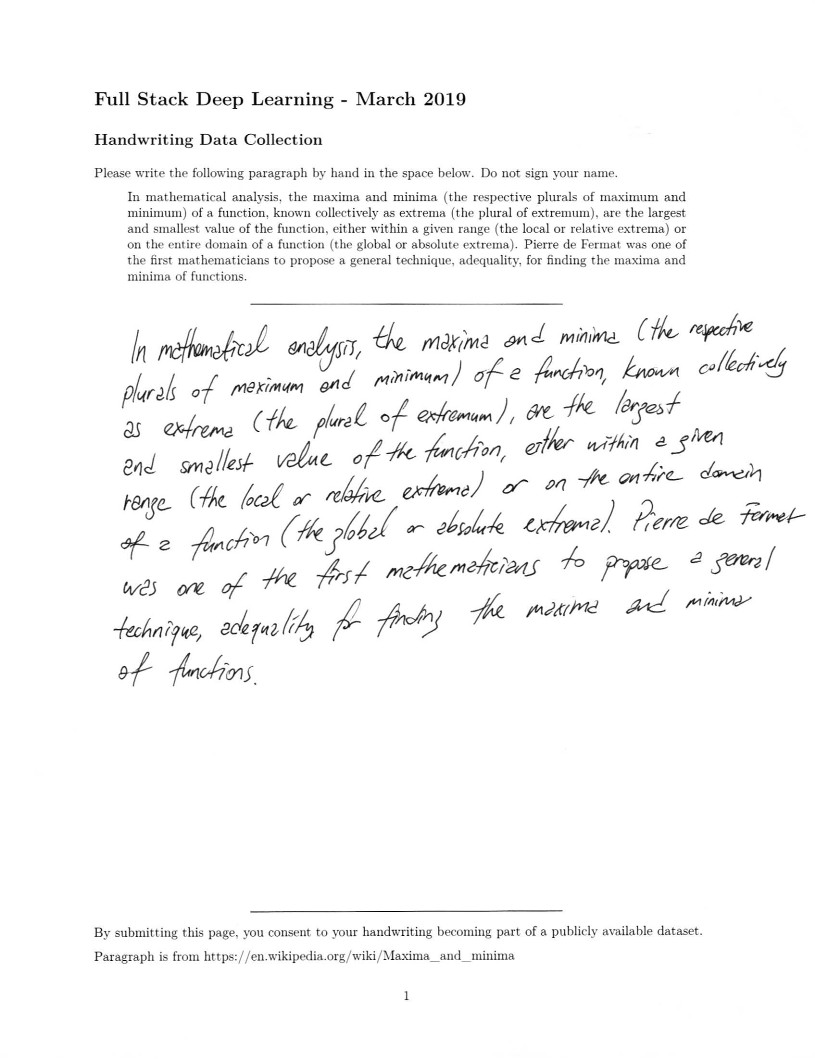 Full Stack Deep Learning - March 2019
Handwriting Data Collection
Please write the following paragraph by hand in the space below. Do not sign your name.
In mathematical analysis, the maxima and minima (the respective plurals of maximum and
minimum) of a function, known collectively as extrema (the plural of extremum), are the largest
and smallest value of the function, either within a given range (the local or relative extrema) or
on the entire domain of a function (the global or absolute extrema). Pierre de Fermat was one of
the first mathematicians to propose a general technique, adequality, for finding the maxima and
minima of functions.
In mathematical analysis, the maxima and minima (the respective
plurals of maximum and minimum) of a function, known collectively
as extrema (the plural of extremum), are the largest
and smallest value of the function, either within a given
range (the local or relative extrema) or on the entire domain
of a function (the global or absolute extrema). Pierre de Fermat
was one of the first mathematicians to propose a general
technique, adequality for finding the maxima and minima
of functions.
By submitting this page, you consent to your handwriting becoming part of a publicly available dataset.
Paragraph is from https://en.wikipedia.org/wiki/Maxima_and_minima
1